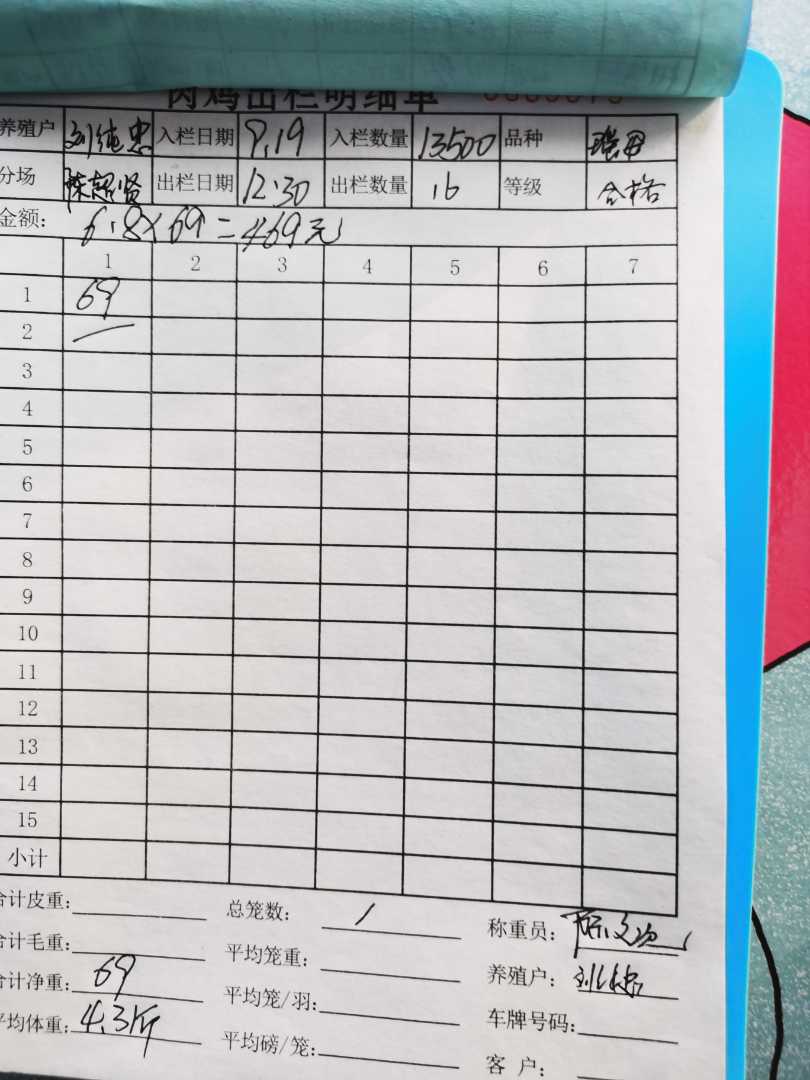 肉鸡出栏明细单
养殖户 刘纯忠 入栏日期 9.19 入栏数量 13500 品种
分场 陈超贤 出栏日期 12.30 出栏数量 16 等级 合格
金额: 6.8×69=469元
1 2 3 4 5 6 7
1 69
2
3
4
5
6
7
8
9
10
11
12
13
14
15
小计
合计皮重: 总笼数: 1 称重员:
合计毛重: 平均笼重: 养殖户:
合计净重: 69 平均笼/羽: 车牌号码:
平均体重: 4.3斤 平均磅/笼: 客 户: